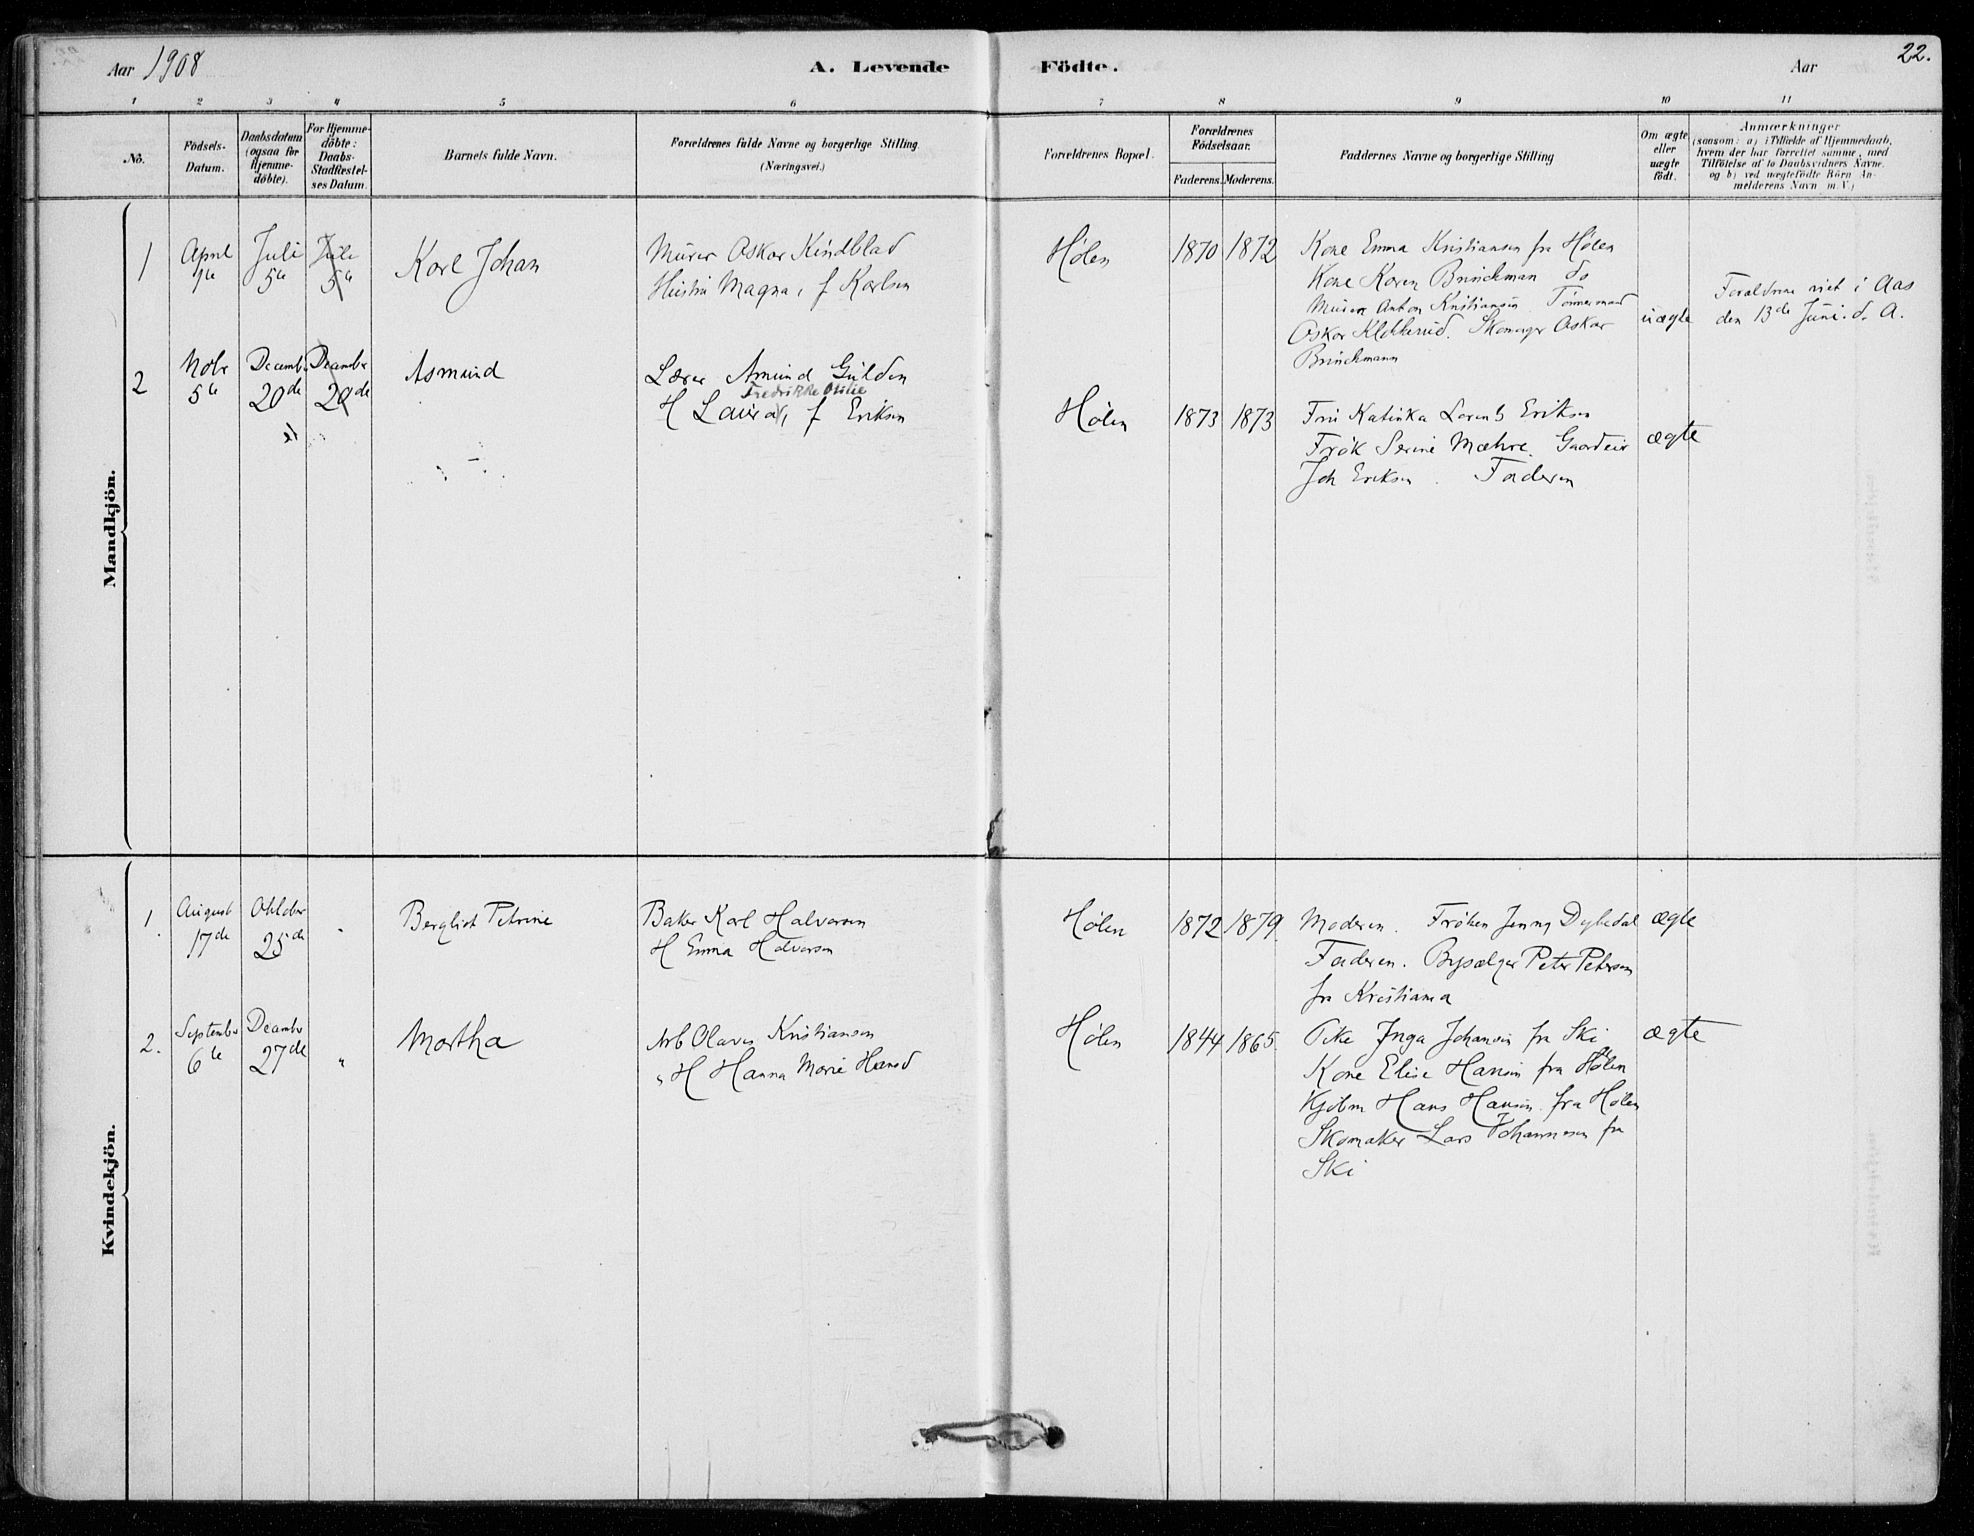 Aar 1908
A. Levende
Födte.
Aar
22.
1 2 3 4 5 6 7 8 9 10 11
No.
Födsels-
Datum.
Daabsdatum
(ogsaa for
Hjemme-
döbte).
For Hjemme-
döbte:
Daabs-
Stadfæstel-
ses Datum.
Barnets fulde Navn.
Forældrenes fulde Navne og borgerlige Stilling
(Næringsvei.)
Forældrenes Bopæl.
Forældrenes
Födselsaar.
Faderens. Moderens.
Faddernes Navne og borgerlige Stilling
Om ægte
eller
uægte
födt.
Anmærkninger
(saasom: a) i Tilfælde af Hjemmedaab,
hvem der har forrettet samme, med
Tilföielse af to Daabsvidners Navne.
og b) ved uægtefödte Börn An-
melderens Navn m. V.)
Mandkjön.
1
April
Juli
5te
Juli
5te
Karl Johan
Murer Oskar Kindblad
Hustru Magna, f Karlsen
Hølen
1870
1872
Kone Emma Kristiansen fra Hølen
Kone Karen Brinckman do
Murer Anton Kristiansen Tömmermand
Oskar Klokkerud. Skomager Oskar
Brinckmann
uægte
Forældrene viet i Aas
den 13de Juni d. A.
2
Nobr
5te
Decemb
20de
December
20de
Asmund
Lærer Amund Gulden
Fredrikke Otilie
H Laura, f Eriksen
Hølen
1873
1873
Fru Katinka Lorentz Eriksen
Frøk Serine Mæhre. Gaardeier
Joh Eriksen. Faderen
ægte
Kvindekjön.
1.
August
17de
Oktober
25de
Bergliot Petrine
Baker Karl Halvorsen
H Emma Halvorsen
Hølen
1872
1879
Moderen. Frøken Jenny Dybedal
Faderen. Peter Petersen
fra Kristiania
ægte
2.
September
6te
Decembr
27de
"
Martha
Arb Olaves Kristiansen
H Hanna Marie
Hølen
1844
1865
Pike Inga Johansen fra Ski
Kone Elise Hansen fra Hølen
Kjøbm Hans Hansen fra Hølen
Skomaker Lars Johannesen fra
Ski
ægte